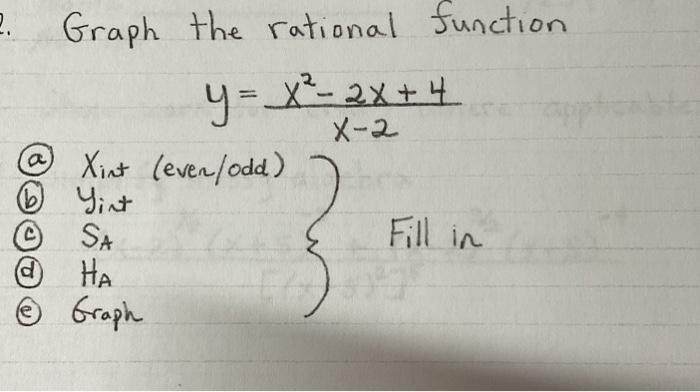 2. Graph the rational function
y = x² - 2x + 4
x - 2
(a) Xint (even/odd)
(b) Yint
(c) SA
(d) HA
(e) Graph
Fill in